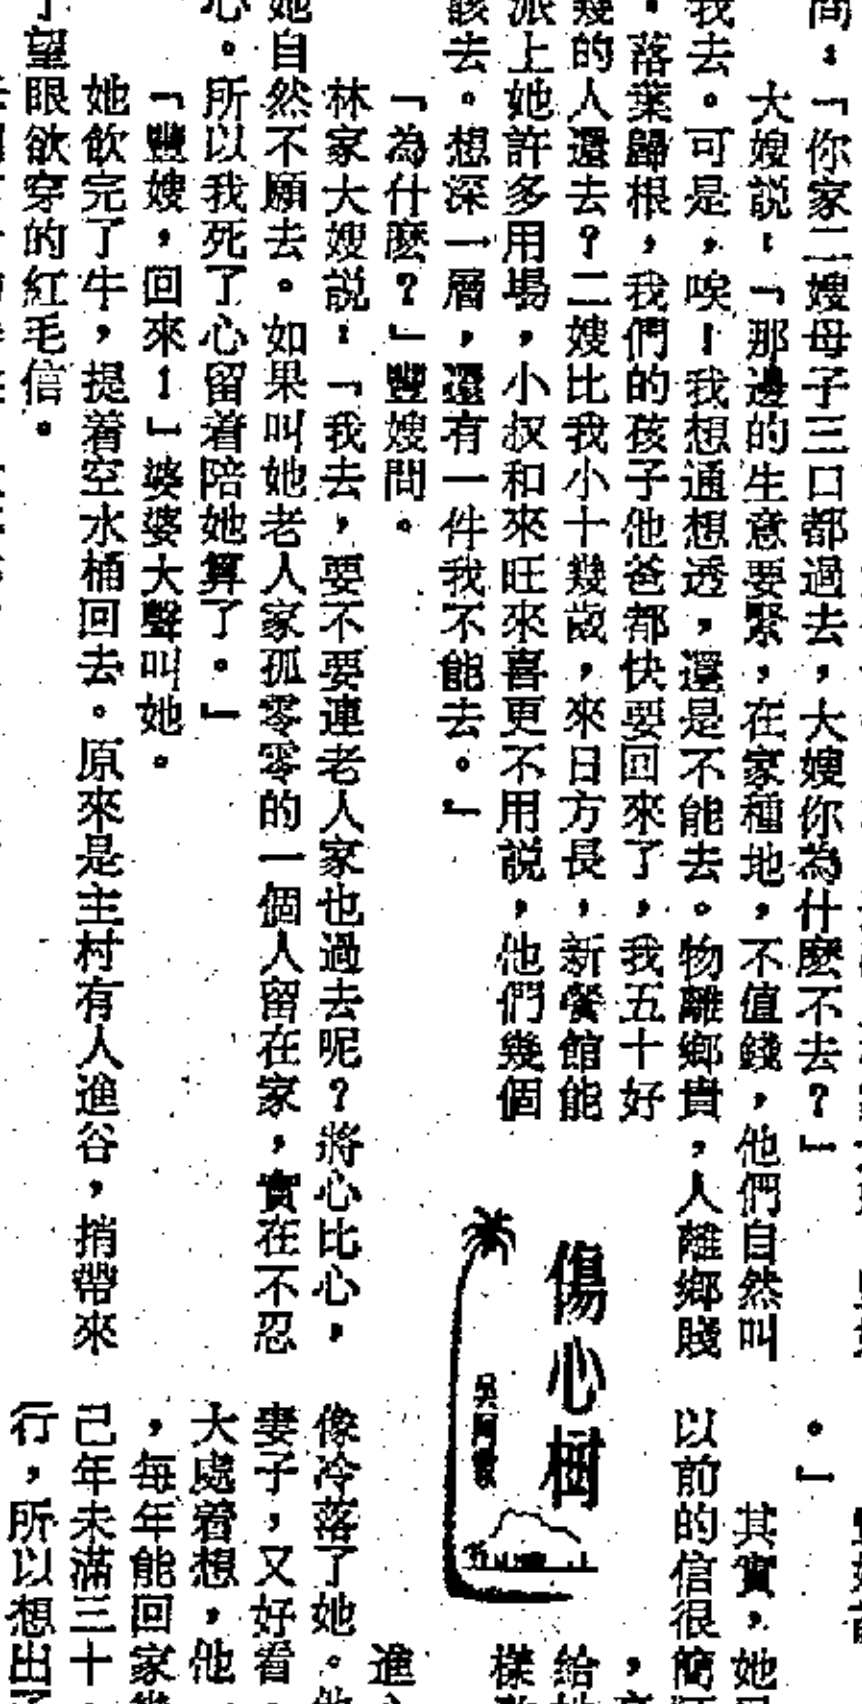 問：「你家二嫂母子三口都過去，大嫂你為什麽不去？」
大嫂説：「那邊的生意要緊，在家種地，不值錢，他們自然叫
我去。可是，唉！我想通想透，還是不能去。物離鄉貴，人離鄉賤
。落葉歸根，我們的孩子他爸都快要回來了，我五十好
幾的人還去？二嫂比我小十幾歲，來日方長，新餐館能
派上她許多用場，小叔和來旺來喜更不用説，他們幾個
該去。想深一層，還有一件我不能去。」
「為什麽？」豐嫂問。
林家大嫂説：「我去，要不要連老人家也過去呢？將心比心，
她自然不願去。如果叫她老人家孤零零的一個人留在家，實在不忍
心。所以我死了心留着陪她算了。」
「豐嫂，回來！」婆婆大聲叫她。
她飲完了牛，提着空水桶回去。原來是主村有人進谷，捎帶來
了望眼欲穿的紅毛信。
傷心树
。」
其實，她
以前的信很簡
給
樣
進
像冷落了她。
妻子，又好看
大處着想，他
，每年能回家
己年未滿三十
行，所以想出